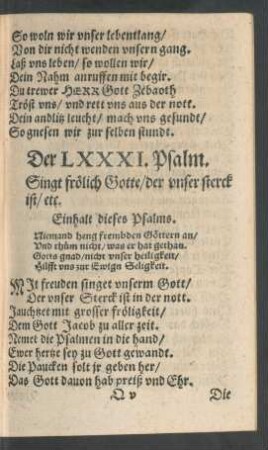 So woln wir vnser lebentlang/
Von dir nicht wenden vnsern gang.
Laß vns leben/ so wollen wir/
Dein Nahm anruffen mit begir.
Du trewer HERR Gott Zebaoth
Tröst vns/ vnd rett vns aus der nott.
Dein andlitz leucht/ mach vns gesundt/
So gnesen wir zur selben stundt.
Der LXXXI. Psalm.
Singt frölich Gotte/ der vnser sterck
ist/ etc.
Einhalt dieses Psalms.
Niemand heng frembden Göttern an/
Vnd thüm nicht/ was er hat gethan.
Gotts gnad/ nicht vnser heiligkeit/
Hilfft vns zur Ewign Seligkeit.
MIt freuden singet vnserm Gott/
Der vnser Sterck ist in der nott.
Jauchtzet mit grosser fröligkeit/
Dem Gott Jacob zu aller zeit.
Nemet die Psalmen in die hand/
Ewer hertze sey zu Gott gewandt.
Die Paucken solt jr geben her/
Das Gott dauon hab preiß vnd Ehr.
Q v Die